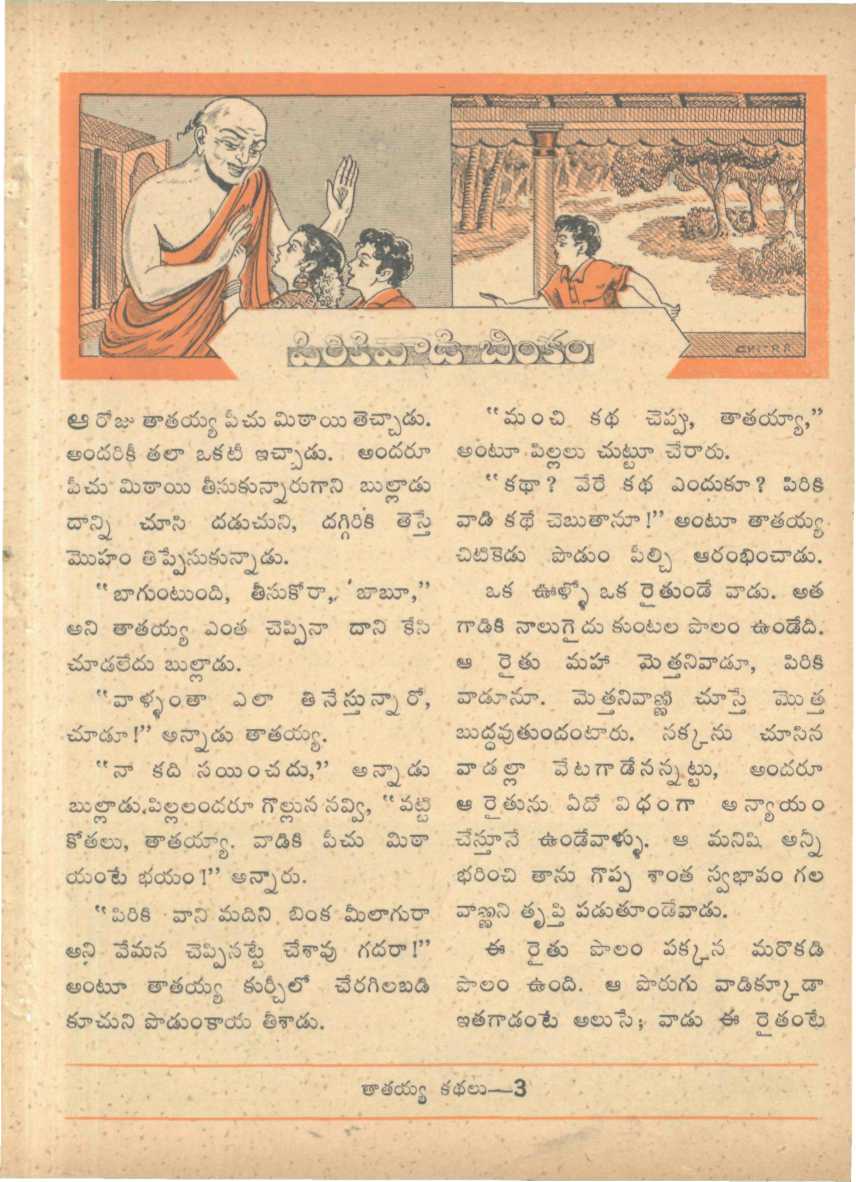 పిరికివాడి బింకం
CHITRA
ఆ రోజు తాతయ్య పీచు మిఠాయి తెచ్చాడు.
అందరికీ తలా ఒకటీ ఇచ్చాడు. అందరూ
పీచు మిఠాయి తీసుకున్నారుగాని బుల్లాడు
దాన్ని చూసి దడుచుని, దగ్గిరికి తెస్తే
మొహం తిప్పేసుకున్నాడు.
“బాగుంటుంది, తీసుకోరా, బాబూ,”
అని తాతయ్య ఎంత చెప్పినా దాని కేసి
చూడలేదు బుల్లాడు.
“వాళ్ళంతా ఎలా తినేస్తున్నారో,
చూడూ!” అన్నాడు తాతయ్య.
“నా కది సయించదు,” అన్నాడు
బుల్లాడు.పిల్లలందరూ గొల్లున నవ్వి, “వట్టి
కోతలు, తాతయ్యా. వాడికి పీచు మిఠా
యంటే భయం!” అన్నారు.
“పిరికి వాని మదిని బింక మీలాగురా
అని వేమన చెప్పినట్టే చేశావు గదరా!”
అంటూ తాతయ్య కుర్చీలో చేరగిలబడి
కూచుని పొడుంకాయ తీశాడు.
“మంచి కథ చెప్పు, తాతయ్యా,”
అంటూ పిల్లలు చుట్టూ చేరారు.
“కథా? వేరే కథ ఎందుకూ? పిరికి
వాడి కథే చెబుతానూ!” అంటూ తాతయ్య
చిటికెడు పొడుం పీల్చి ఆరంభించాడు.
ఒక ఊళ్ళో ఒక రైతుండే వాడు. అత
గాడికి నాలుగైదు కుంటల పొలం ఉండేది.
ఆ రైతు మహా మెత్తనివాడూ, పిరికి
వాడూనూ. మెత్తనివాణ్ణి చూస్తే మొత్త
బుద్ధవుతుందంటారు. నక్కను చూసిన
వాడల్లా వేటగాడేనన్నట్టు, అందరూ
ఆ రైతును ఏదో విధంగా అన్యాయం
చేస్తూనే ఉండేవాళ్ళు. ఆ మనిషి అన్నీ
భరించి తాను గొప్ప శాంత స్వభావం గల
వాణ్ణని తృప్తి పడుతూండేవాడు.
ఈ రైతు పొలం పక్కన మరొకడి
పొలం ఉంది. ఆ పొరుగు వాడిక్కూడా
ఇతగాడంటే అలుసే; వాడు ఈ రైతంటే
తాతయ్య కథలు—3